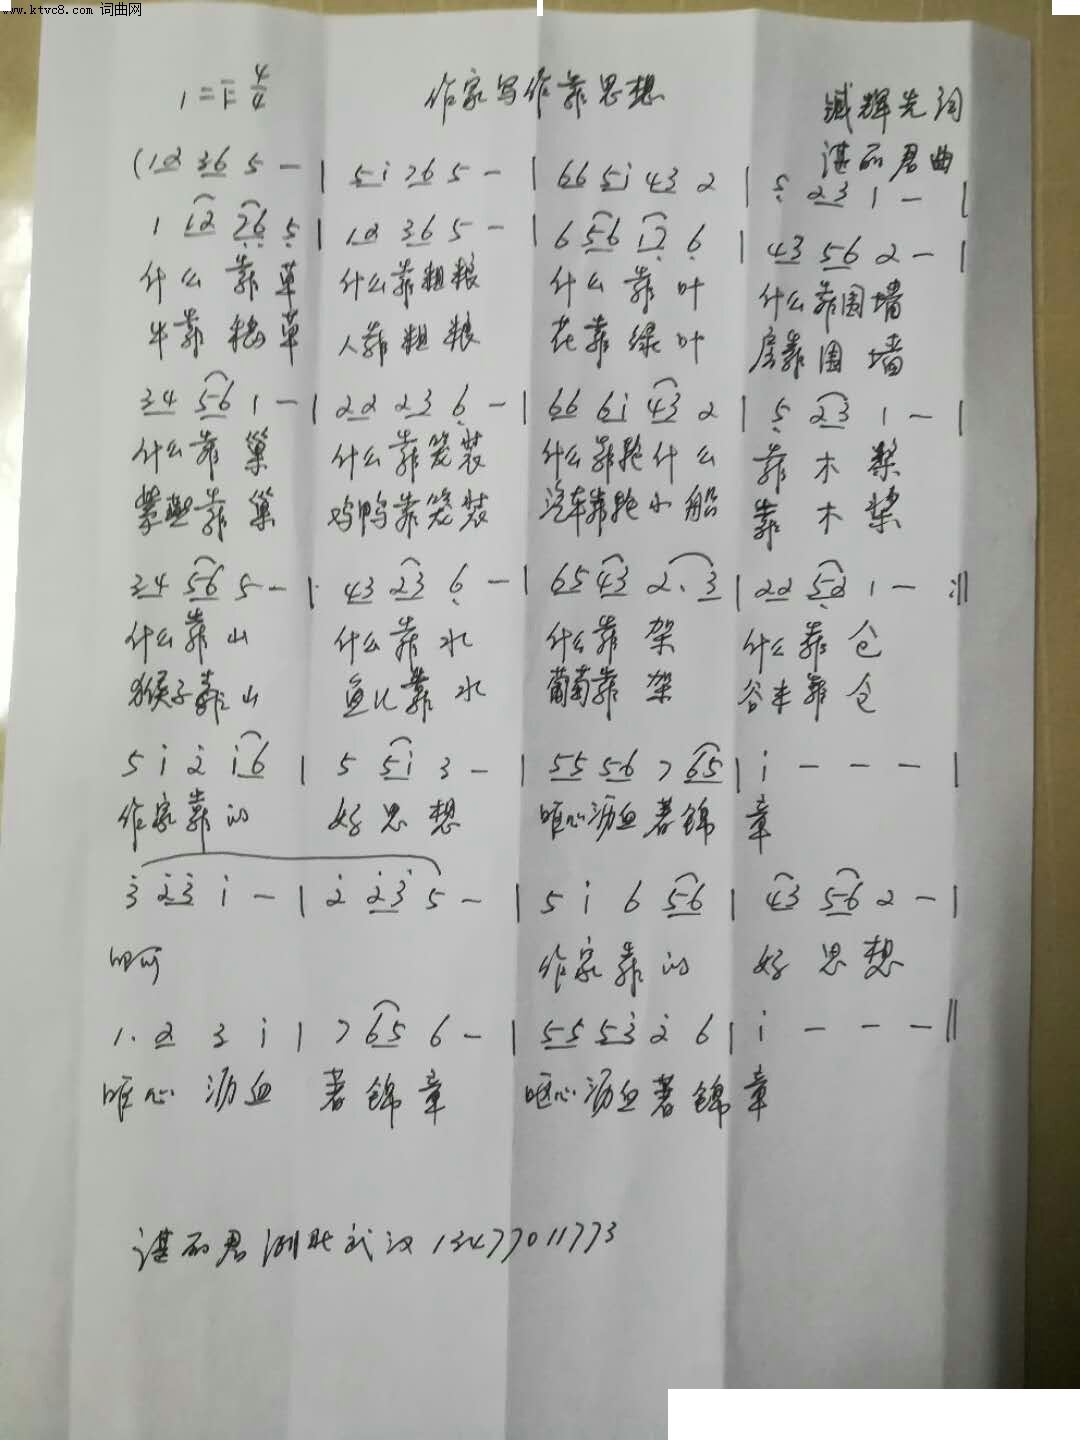 www.ktvc8.com 词曲网
1=F 4/4 作家写作靠思想 臧辉先词
(12 36 5 - | 5i 76 5 - | 66 5i 43 2 | 5 23 1 - | 谌丽君曲
1 12 26 5 | 12 36 5 - | 6 56 12 6 | 43 56 2 - |
什么靠草 什么靠粗粮 什么靠叶 什么靠围墙
牛靠粮草 人靠粗粮 花靠绿叶 房靠围墙
34 56 1 - | 22 23 6 - | 66 6i 43 2 | 5 23 1 - |
什么靠巢 什么靠笼装 什么靠轮什么 靠木桨
靠巢 鸡鸭靠笼装 汽车靠轮小船 靠木桨
34 56 5 - | 43 23 6 - | 65 43 2. 3 | 22 52 1 - :||
什么靠山 什么靠水 什么靠架 什么靠仓
猴子靠山 鱼儿靠水 葡萄靠架 谷丰靠仓
5 i 2 i6 | 5 5i 3 - | 55 56 7 65 | i - - - |
作家靠的 好思想 呕心沥血著锦章
3 23 i - | 2 23 5 - | 5 i 6 56 | 43 56 2 - |
啊 作家靠的 好思想
1. 2 3 i | 7 65 6 - | 55 53 2 6 | i - - - ||
呕心沥血 著锦章 呕心沥血著锦章
谌丽君湖北武汉13477011773